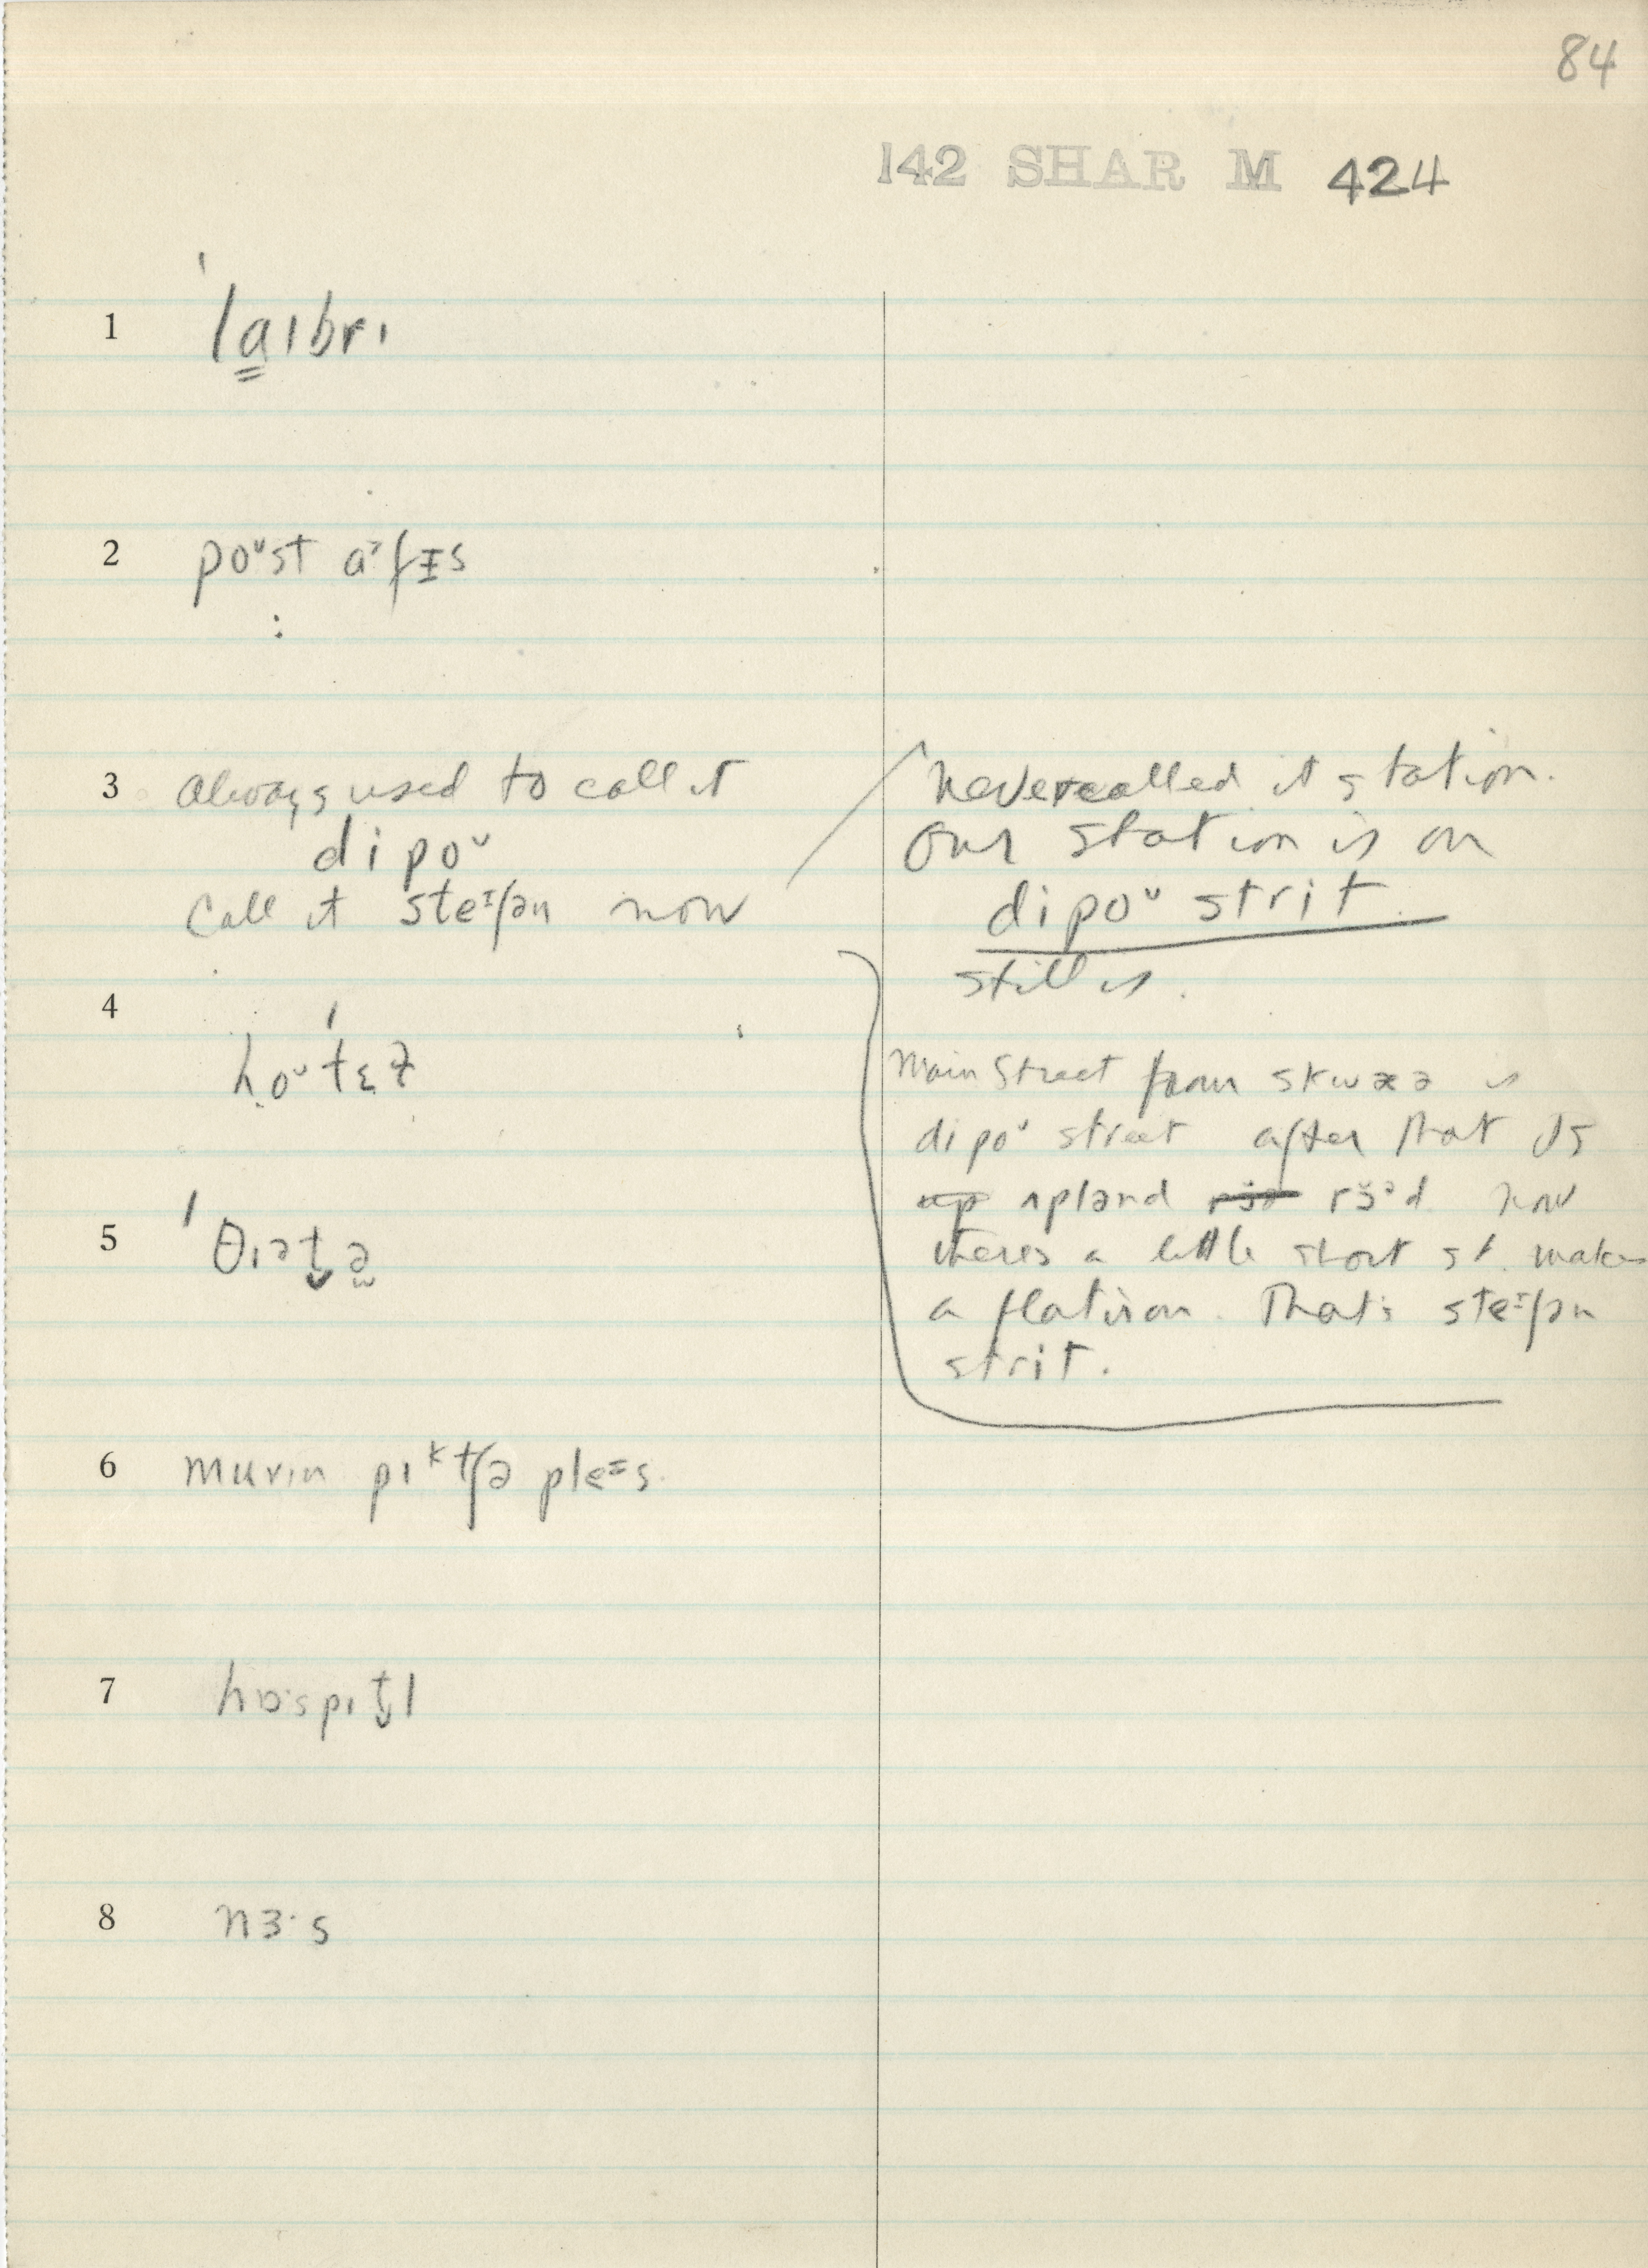 84
142 SHAR M 424
1 ˈlaɪbrɪ
2 poᵘst ɑ˃fɪs
3 Always used to call it
dipoᵘ
Call it steᶦʃən now
never called it station.
Our station is on
dipoᵘ strit
still is.
4 hoᵘˈtɛɫ
Main Street from skwæə is
dipoᵘ street after that it's
up ʌplənd rɜ̆ə rɜ̆ᵊd now
there's a little short st. makes
a flatiron. That's steᶦʃən
strit.
5 ˈθɪət̬ə
6 muvɪn pɪᵏtʃə pleᶦs.
7 hɒspɪt̬l
8 nɜ·s